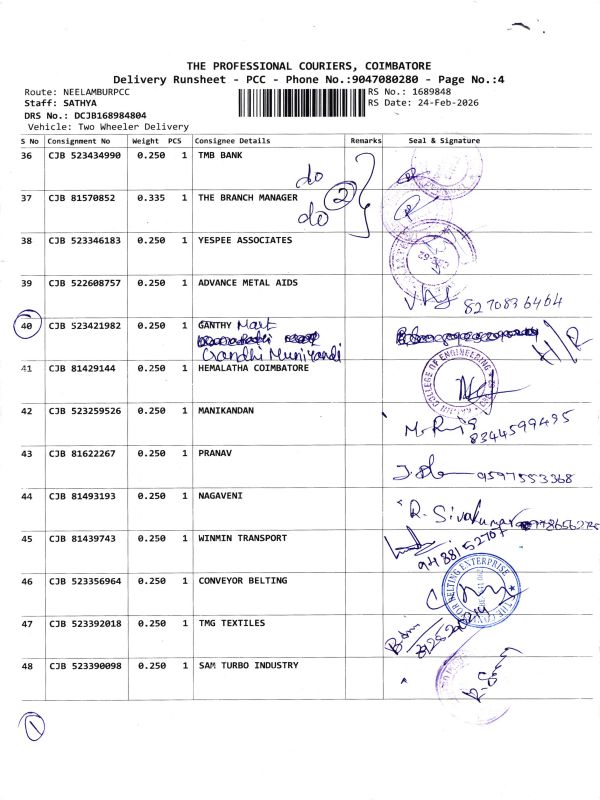 THE PROFESSIONAL COURIERS, COIMBATORE
Delivery Runsheet - PCC - Phone No.:9047080280 - Page No.:4
Route: NEELAMBURPCC
RS No.: 1689848
Staff: SATHYA
RS Date: 24-Feb-2026
DRS No.: DCJB168984804
Vehicle: Two Wheeler Delivery
S No Consignment No Weight PCS Consignee Details Remarks Seal & Signature
36 CJB 523434990 0.250 1 TMB BANK
do
2
37 CJB 81570852 0.335 1 THE BRANCH MANAGER
do
38 CJB 523346183 0.250 1 YESPEE ASSOCIATES
39 CJB 522608757 0.250 1 ADVANCE METAL AIDS
8270836464
40 CJB 523421982 0.250 1 GANTHY Mart
Gandhi Muniyandi
H/R
41 CJB 81429144 0.250 1 HEMALATHA COIMBATORE
COLLEGE OF ENGINEERING
42 CJB 523259526 0.250 1 MANIKANDAN
8344599495
43 CJB 81622267 0.250 1 PRANAV
9597553368
44 CJB 81493193 0.250 1 NAGAVENI
R. Sivakumar
45 CJB 81439743 0.250 1 WINMIN TRANSPORT
9488152707
46 CJB 523356964 0.250 1 CONVEYOR BELTING
BELTING ENTERPRISE
47 CJB 523392018 0.250 1 TMG TEXTILES
48 CJB 523390098 0.250 1 SAM TURBO INDUSTRY
1